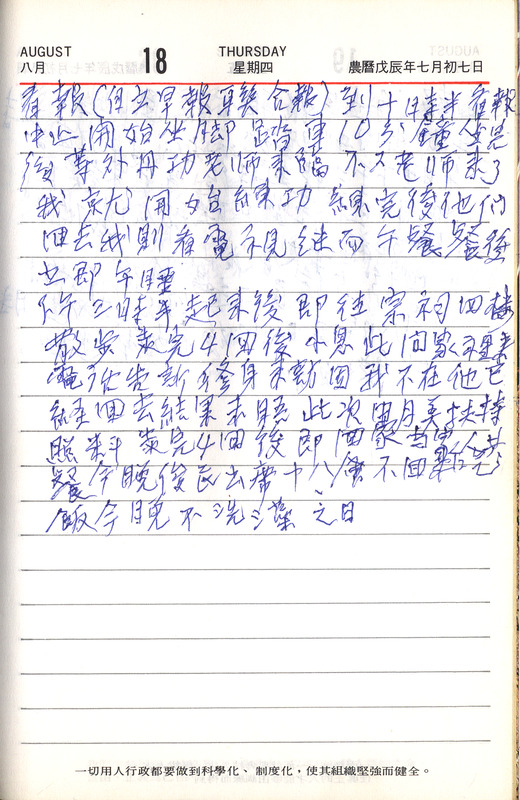 AUGUST 18 THURSDAY
八月 星期四 農曆戊辰年七月初七日
看報(自立早報聯合報)到十時半看報
中止開始坐腳踏車10分鐘坐完
後等外丹功老師來臨不久老師來了
我就開始練功練完後他們
回去我則看電視繼而午餐餐後
立即午睡
下午三時半起來後即往宗祠四樓
散步 走完4回後小息此間家裡來
電話告新修身來訪因我不在他已
經回去結果未晤此次由月美扶持
照料走完4回後即回家
餐今晚俊民出席十八會不回家
飯今晚不洗澡之日
一切用人行政都要做到科學化、制度化,使其組織堅強而健全。